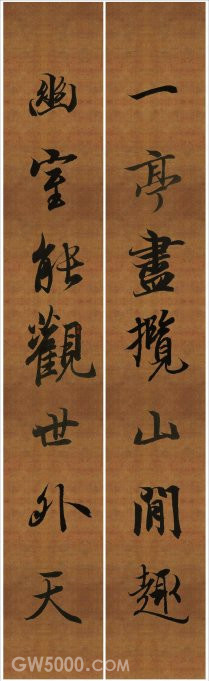 一亭盡攬山間趣
幽室能觀世外天
GW5000.COM